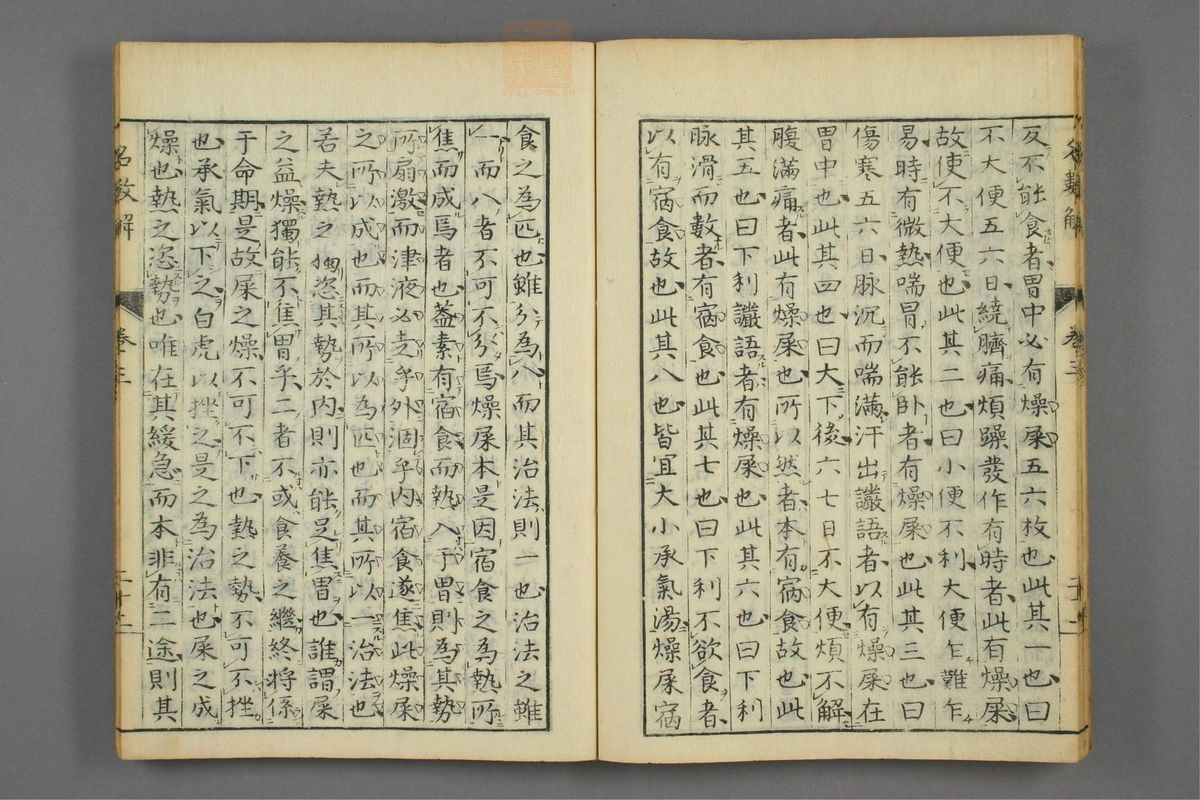 反不能食者胃中必有燥屎五六枚也此其一也曰
不大便五六日繞臍痛煩躁發作有時者此有燥屎
故使不大便也此其二也曰小便不利大便乍難乍
易時有微熱喘冒不能卧者有燥屎也此其三也曰
傷寒五六日脉沉而喘滿汗出讝語者以有燥屎在
胃中也此其四也曰大下後六七日不大便煩不解
腹滿痛者此有燥屎也所以然者本有宿食故也此
其五也曰下利讝語者有燥屎也此其六也曰下利
脉滑而數者有宿食也此其七也曰下利不欲食者
以有宿食故也此其八也皆宜大小承氣湯燥屎宿
食之為匹也雖分為八而其治法則一也治法之雖
一而八者不可不分焉燥屎本是因宿食之為熱所
焦而成焉者也蓋素有宿食而熱入于胃則為其勢
所扇激而津液必走乎外涸乎内宿食遂焦此燥屎
之所以成也而其所以為匹也而其所以一治法也
若夫熱之獨恣其勢於内則亦能足焦胃也誰謂屎
之益燥獨能不焦胃乎二者不或食養之繼終將係
于命期是故屎之燥不可不下也熱之勢不可不挫
也承氣以下之白虎以挫之是之為治法也屎之成
燥也熱之恣勢也唯在其緩急而本非有二途則其
名數解
卷三